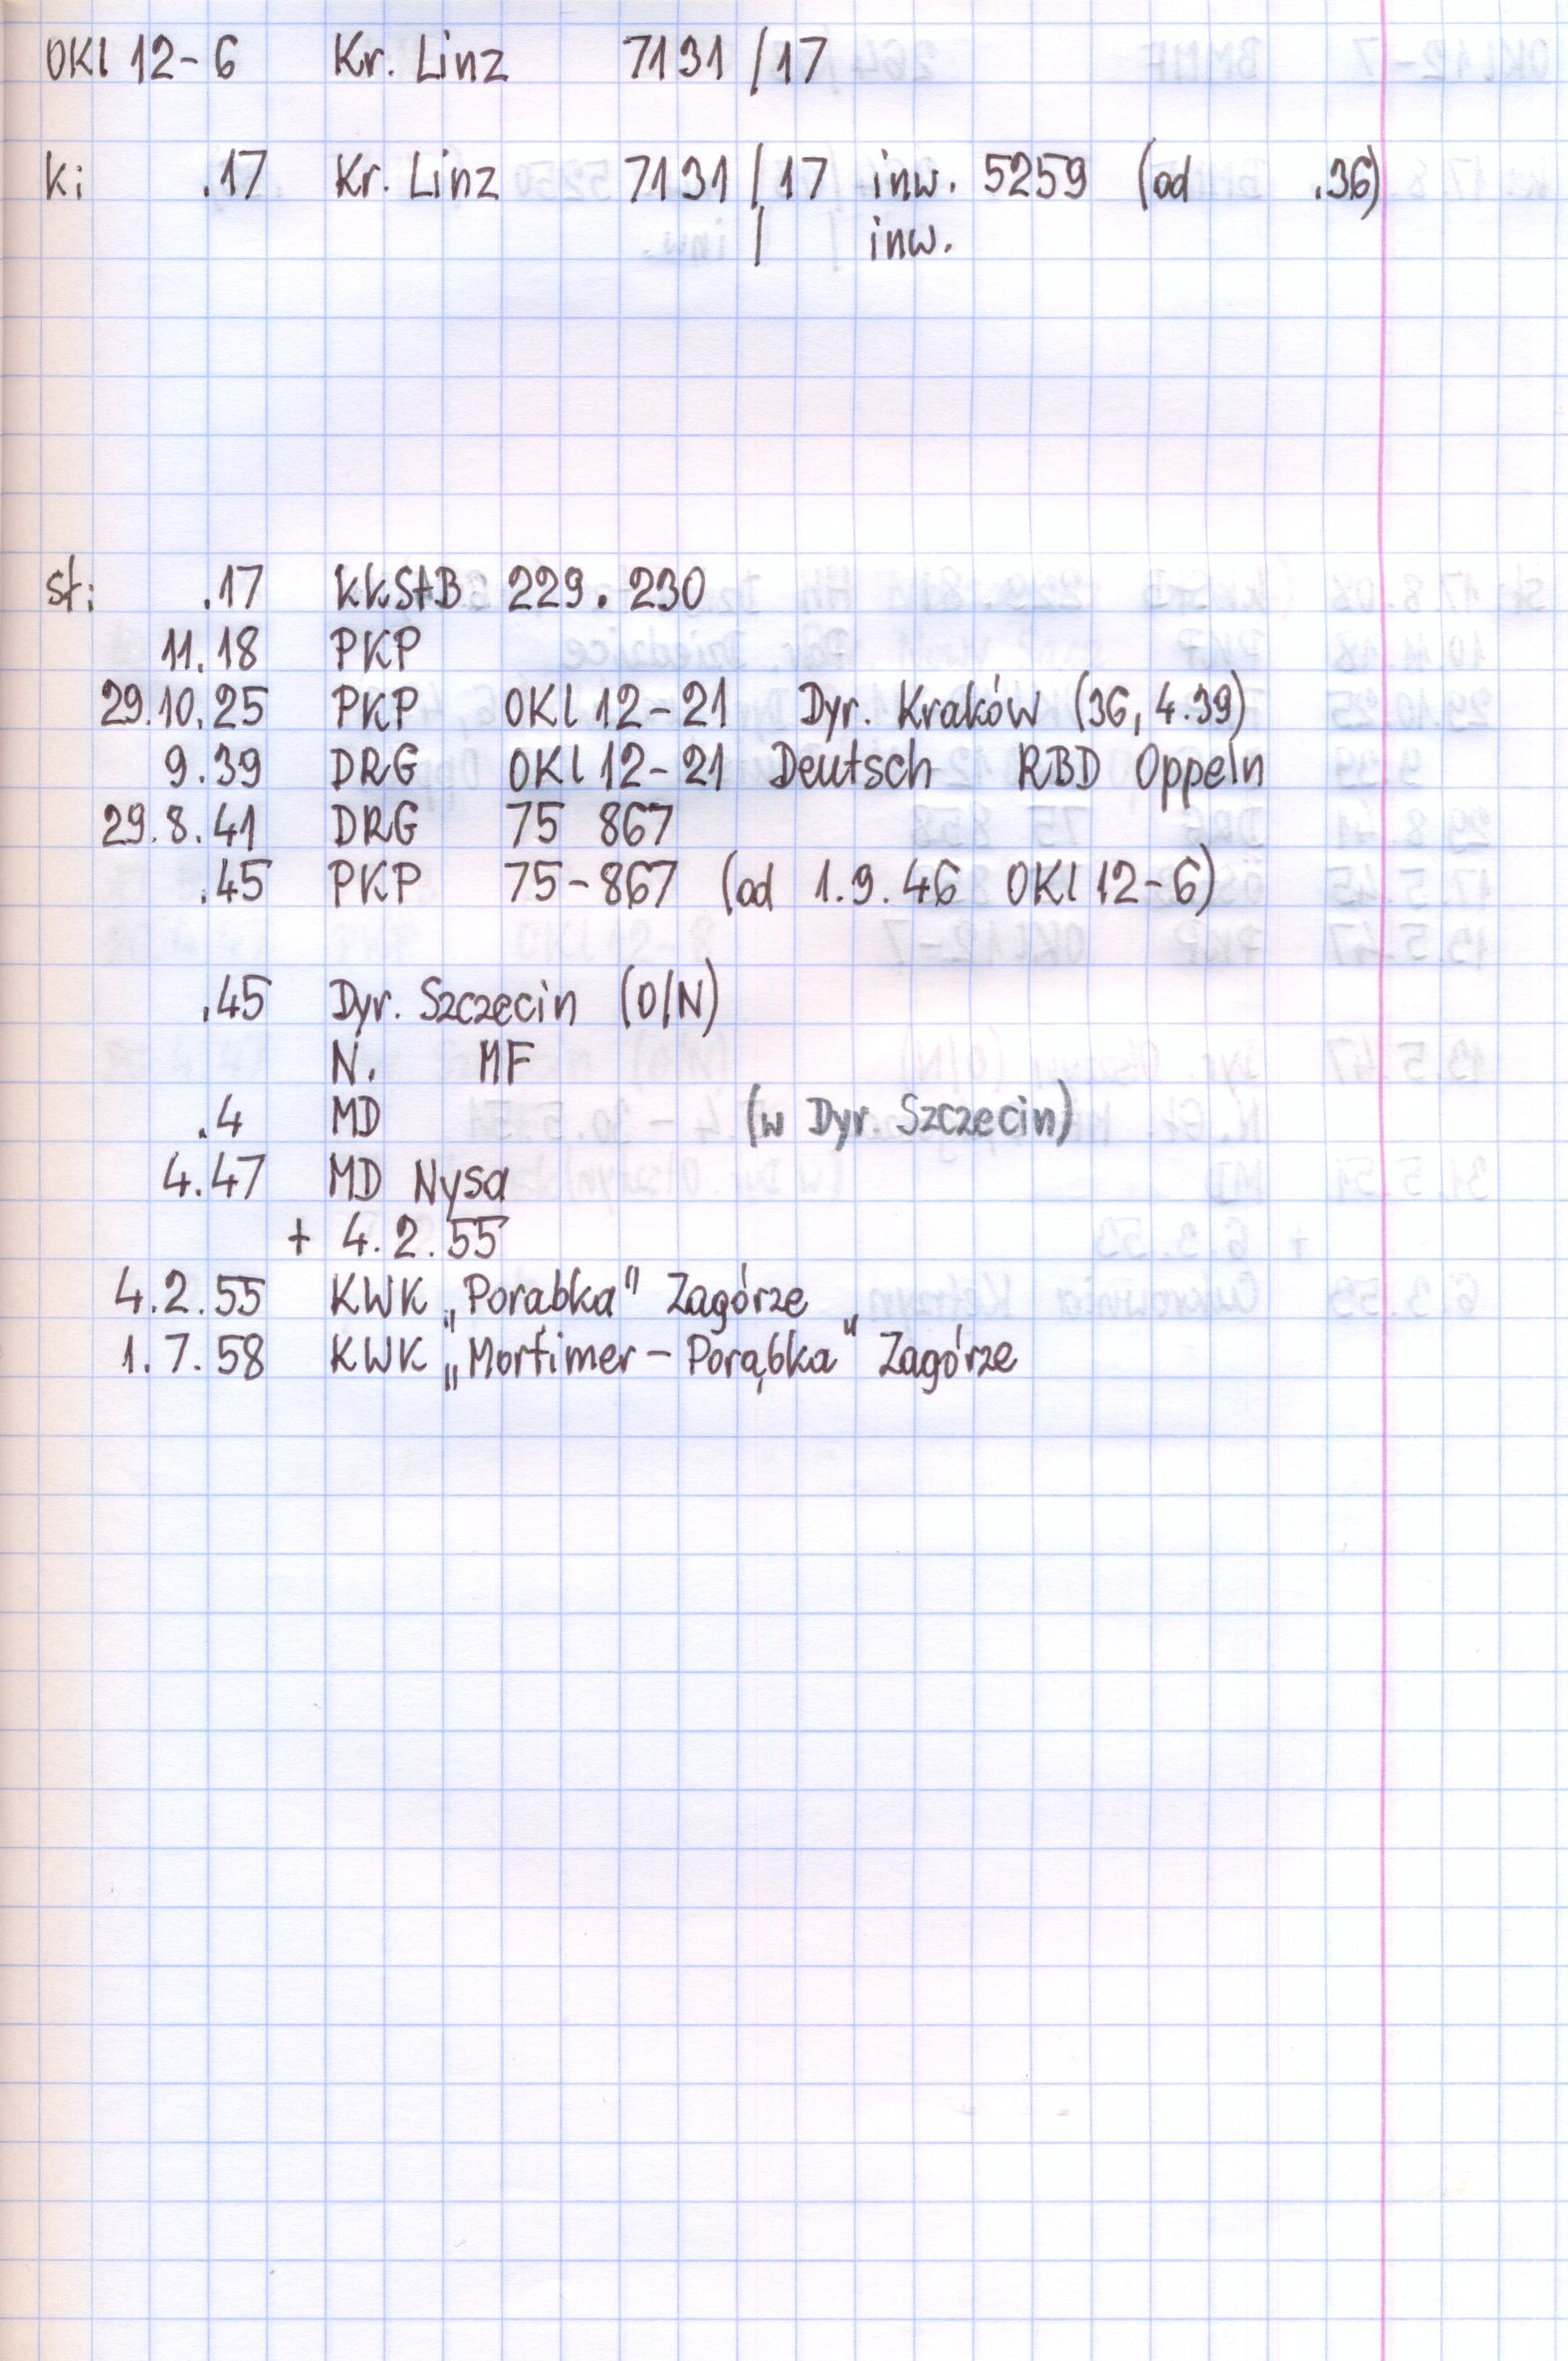 OKl 12-6 Kr. Linz 7131 / 17
ki .17 Kr. Linz 7131 / 17 inw. 5259 (od .36)
/ inw.
st: .17 kkStB 229.230
11.18 PKP
29.10.25 PKP OKl 12-21 Dyr. Kraków (36, 4.39)
9.39 DRG OKl 12-21 Deutsch RBD Oppeln
29.8.41 DRG 75 867
.45 PKP 75-867 (od 1.9.46 OKl 12-6)
.45 Dyr. Szczecin (O/N)
N. MF
.4 MD (w Dyr. Szczecin)
4.47 MD Nysa
+ 4.2.55
4.2.55 KWK „Porąbka" Zagórze
1.7.58 KWK „Mortimer - Porąbka" Zagórze